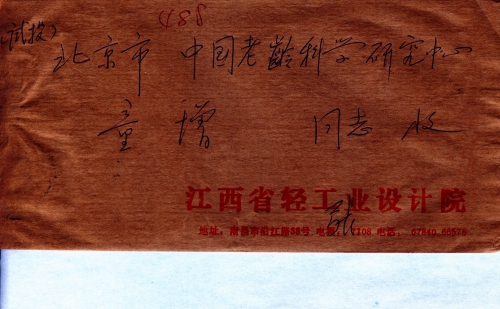 (试投)
488
北京市 中国老龄科学研究中心
童增 同志 收
江西省轻工业设计院
张
地址:南昌市沿江路 号 电 108 电话: 67840.66578